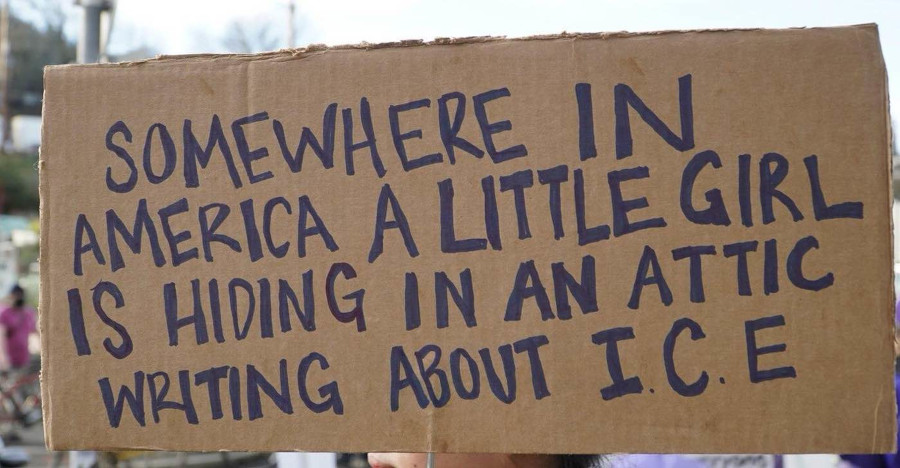 SOMEWHERE IN
AMERICA A LITTLE GIRL
IS HIDING IN AN ATTIC
WRITING ABOUT I.C.E